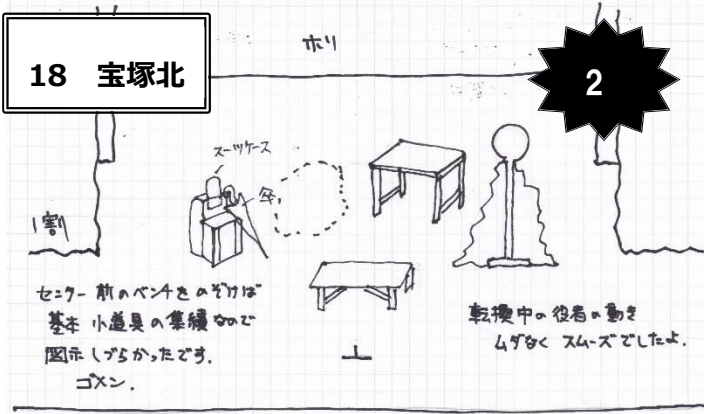 18 宝塚北
ホリ
2
スーツケース
傘
1割
センター前のベンチをのぞけば
基本 小道具の集積なので
図示しづらかったです。
ゴメン.
転換中の役者の動き
ムダなく スムーズでしたよ.